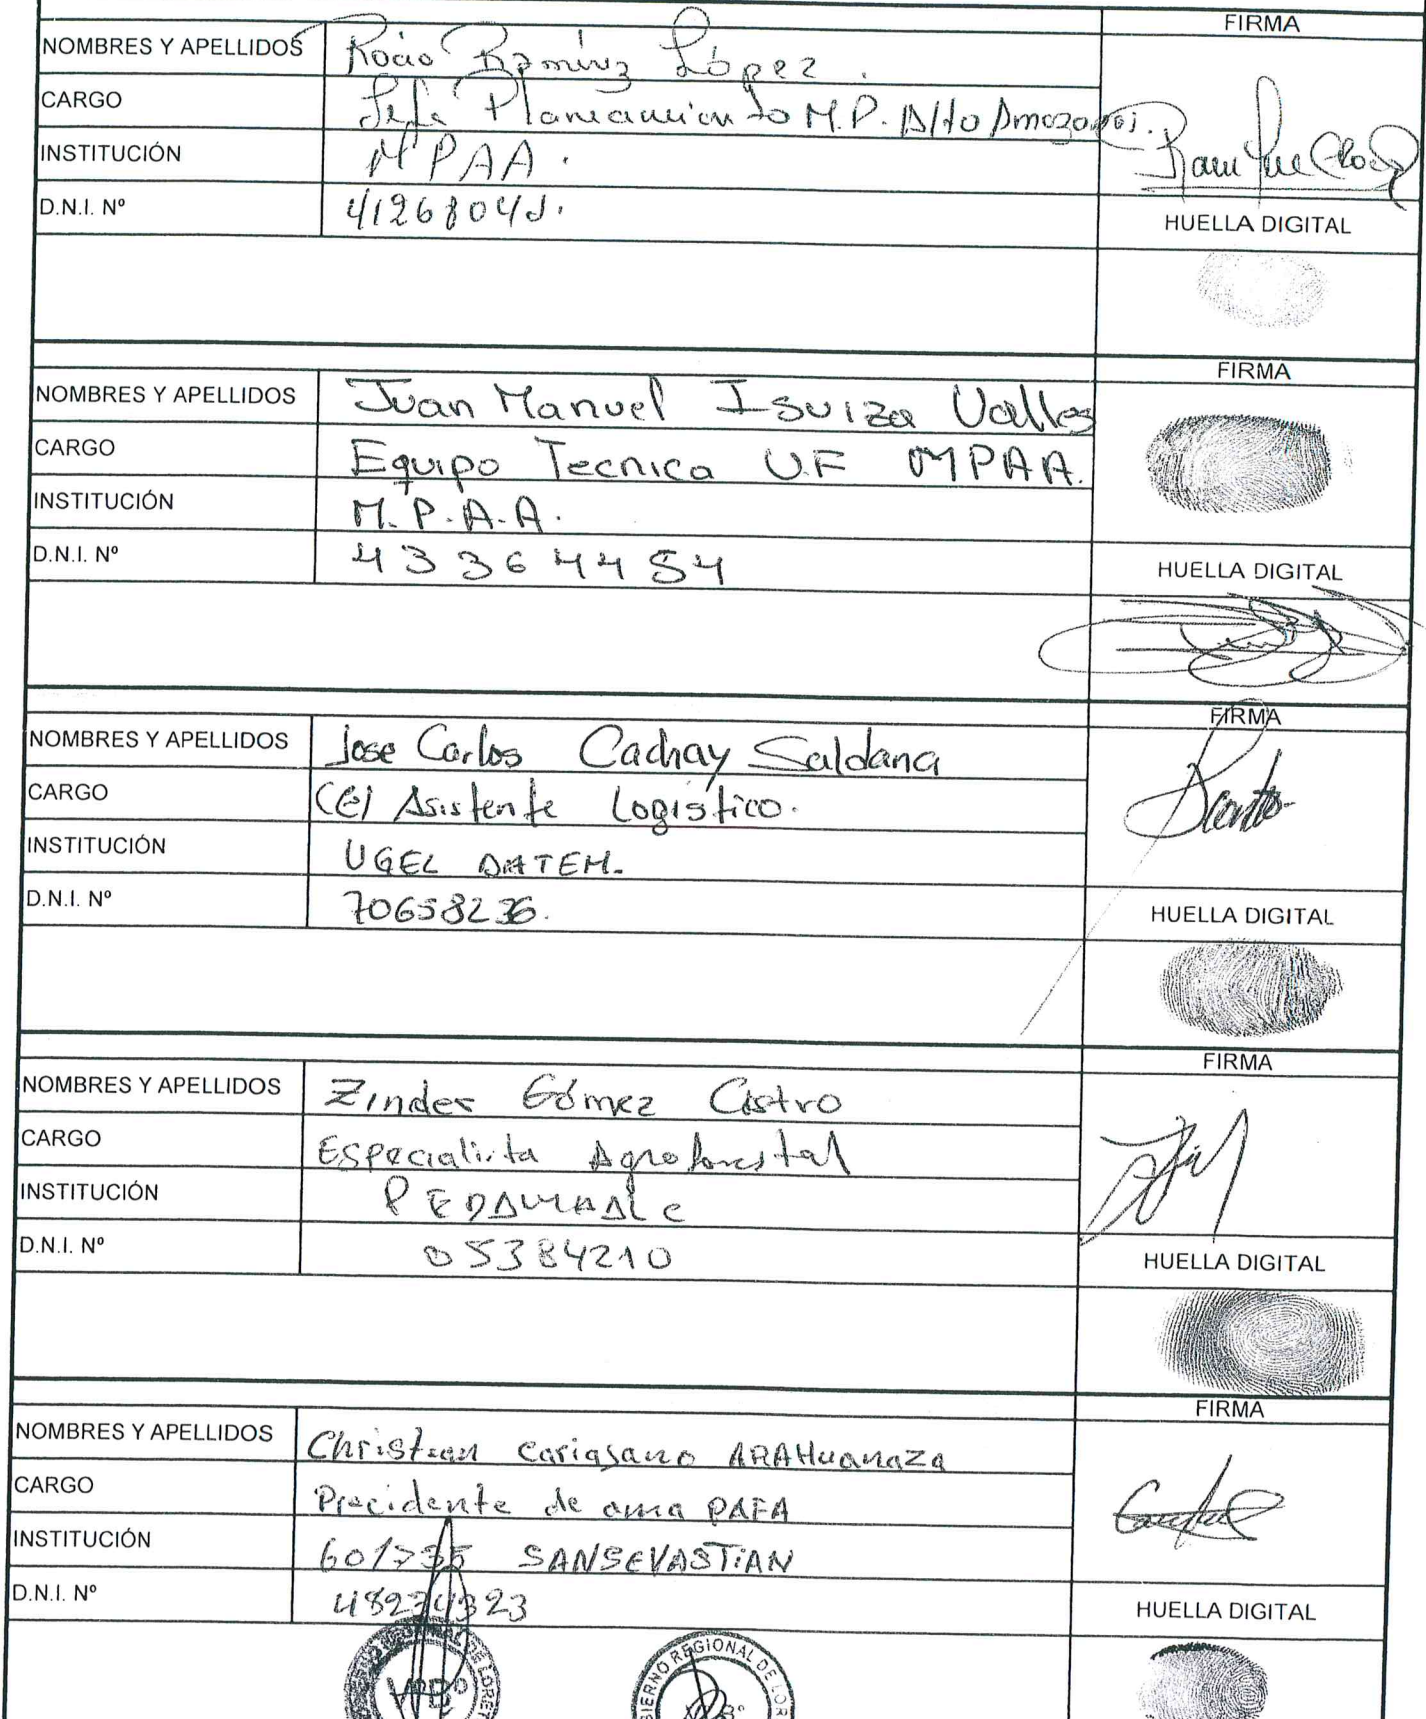 FIRMA
NOMBRES Y APELLIDOS Rocio Ramirez López.
CARGO Jefa Planeamiento M.P. Alto Amazonas.
INSTITUCIÓN MPAA.
D.N.I. Nº
HUELLA DIGITAL
FIRMA
NOMBRES Y APELLIDOS Juan Manuel Isuiza Valles
CARGO Equipo Tecnica UF MPAA.
INSTITUCIÓN M.P.A.A.
D.N.I. Nº 43364454
HUELLA DIGITAL
FIRMA
NOMBRES Y APELLIDOS Jose Carlos Cachay Saldana
CARGO (e) Asistente Logistico.
INSTITUCIÓN UGEL DATEM.
D.N.I. Nº 70658236.
HUELLA DIGITAL
FIRMA
NOMBRES Y APELLIDOS Zinder Gómez Castro
CARGO Especialista Agroforestal
INSTITUCIÓN
D.N.I. Nº 05384210
HUELLA DIGITAL
FIRMA
NOMBRES Y APELLIDOS Christian Cariajano ARAHuanaza
CARGO Precidente de ama PAFA
INSTITUCIÓN SANSEVASTIAN
D.N.I. Nº
HUELLA DIGITAL
REGIONAL DE